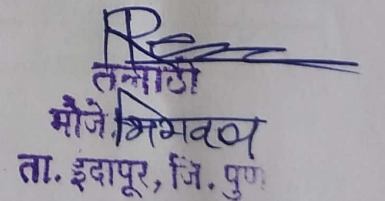 तलाठी
मौजे भिगवण
ता. इंदापूर, जि. पुणे